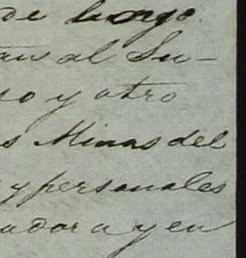 de largo.
tan al Su-
so y otro
s Minas del
y personales
adora y en